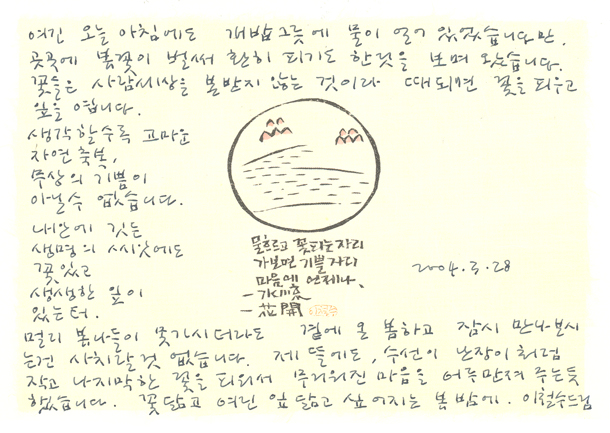 여긴 오늘 아침에도 개밥그릇에 물이 얼어 있었습니다만,
곳곳에 봄꽃이 벌써 환히 피기도 한 것을 보며 왔습니다.
꽃들은 사람세상을 본받지 않는 것이라 때되면 꽃을 피우고
잎을 엽니다.
생각할수록 고마운
자연 축복,
무상의 기쁨이
아닐수 없습니다.
내안에 깃든
생명의 씨앗에도
꽃있고
생생한 잎이
있는터.
물흐르고 꽃피는자리
가보면 기쁠거다
마음에 언제나
花開
2004. 3. 28
멀리 봄나들이 못가시더라도 곁에 온 봄하고 잠시 만나보시
는건 사치랄것 없습니다. 제 뜰에도, 수선이 난장이처럼
작고 나지막한 꽃을 피워서 마음을 어루만져 주는듯
했습니다. 꽃닮고 여린 잎 닮고 싶어지는 봄밤에. 이철수드림